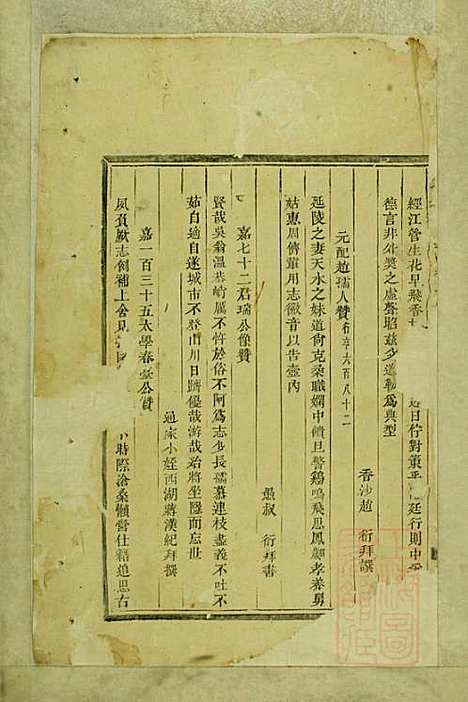 經江管生花早飛香
近日佇對策平 廷行則中
德言非外獎之虛聲昭茲多遺勒為典型
香沙趙 衍拜撰
元配趙孺人贊 行卒六百八十二
延陵之妻天水之妹道尚克柔職嫻中饋旦警鷄鳴飛思鳳翽孝養舅
姑惠周儕輩用志徽音以告壺內
愚叔 衍拜書
嘉七十二君瑞公像贊
賢哉吳翁溫恭崎厲不忤於俗不阿為志少長孺慕連枝盡義不吐不
茹自適自遂城市不登山川日躋優哉游哉始將坐隱而忘世
通家小姪西湖蔣漢紀拜撰
嘉一百三十五太學春公贊
夙負猷志例補上舍見
時際滄桑懶營仕籍追思右